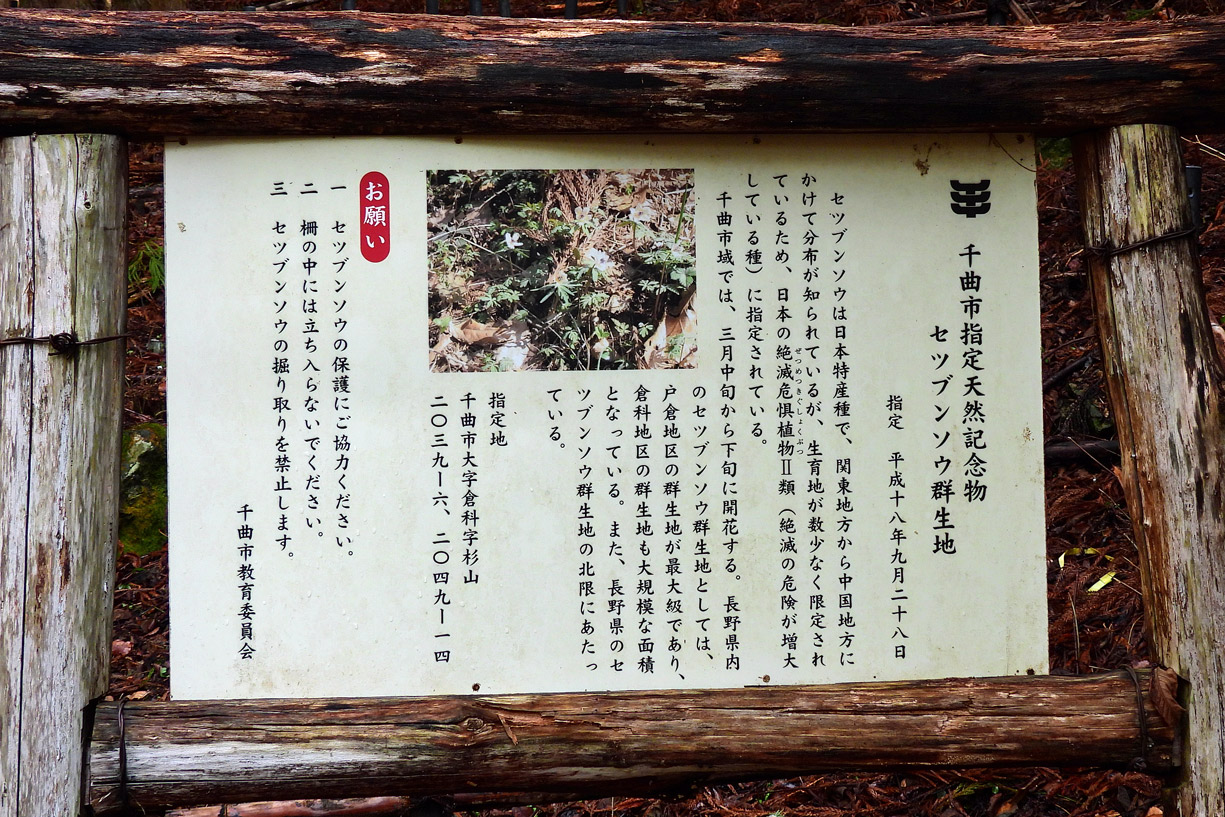 千曲市指定天然記念物
セツブンソウ群生地
指定　平成十八年九月二十八日
セツブンソウは日本特産種で、関東地方から中国地方に
かけて分布が知られているが、生育地が数少なく限定され
ているため、日本の絶滅危惧植物Ⅱ類（絶滅の危険が増大
ぜつめつきぐしょくぶつ
している種）に指定されている。
千曲市域では、三月中旬から下旬に開花する。長野県内
のセツブンソウ群生地としては、
戸倉地区の群生地が最大級であり、
倉科地区の群生地も大規模な面積
となっている。また、長野県のセ
ツブンソウ群生地の北限にあたっ
ている。
指定地
千曲市大字倉科字杉山
二〇三九ー六、二〇四九ー一四
お願い
一　セツブンソウの保護にご協力ください。
二　柵の中には立ち入らないでください。
三　セツブンソウの掘り取りを禁止します。
千曲市教育委員会